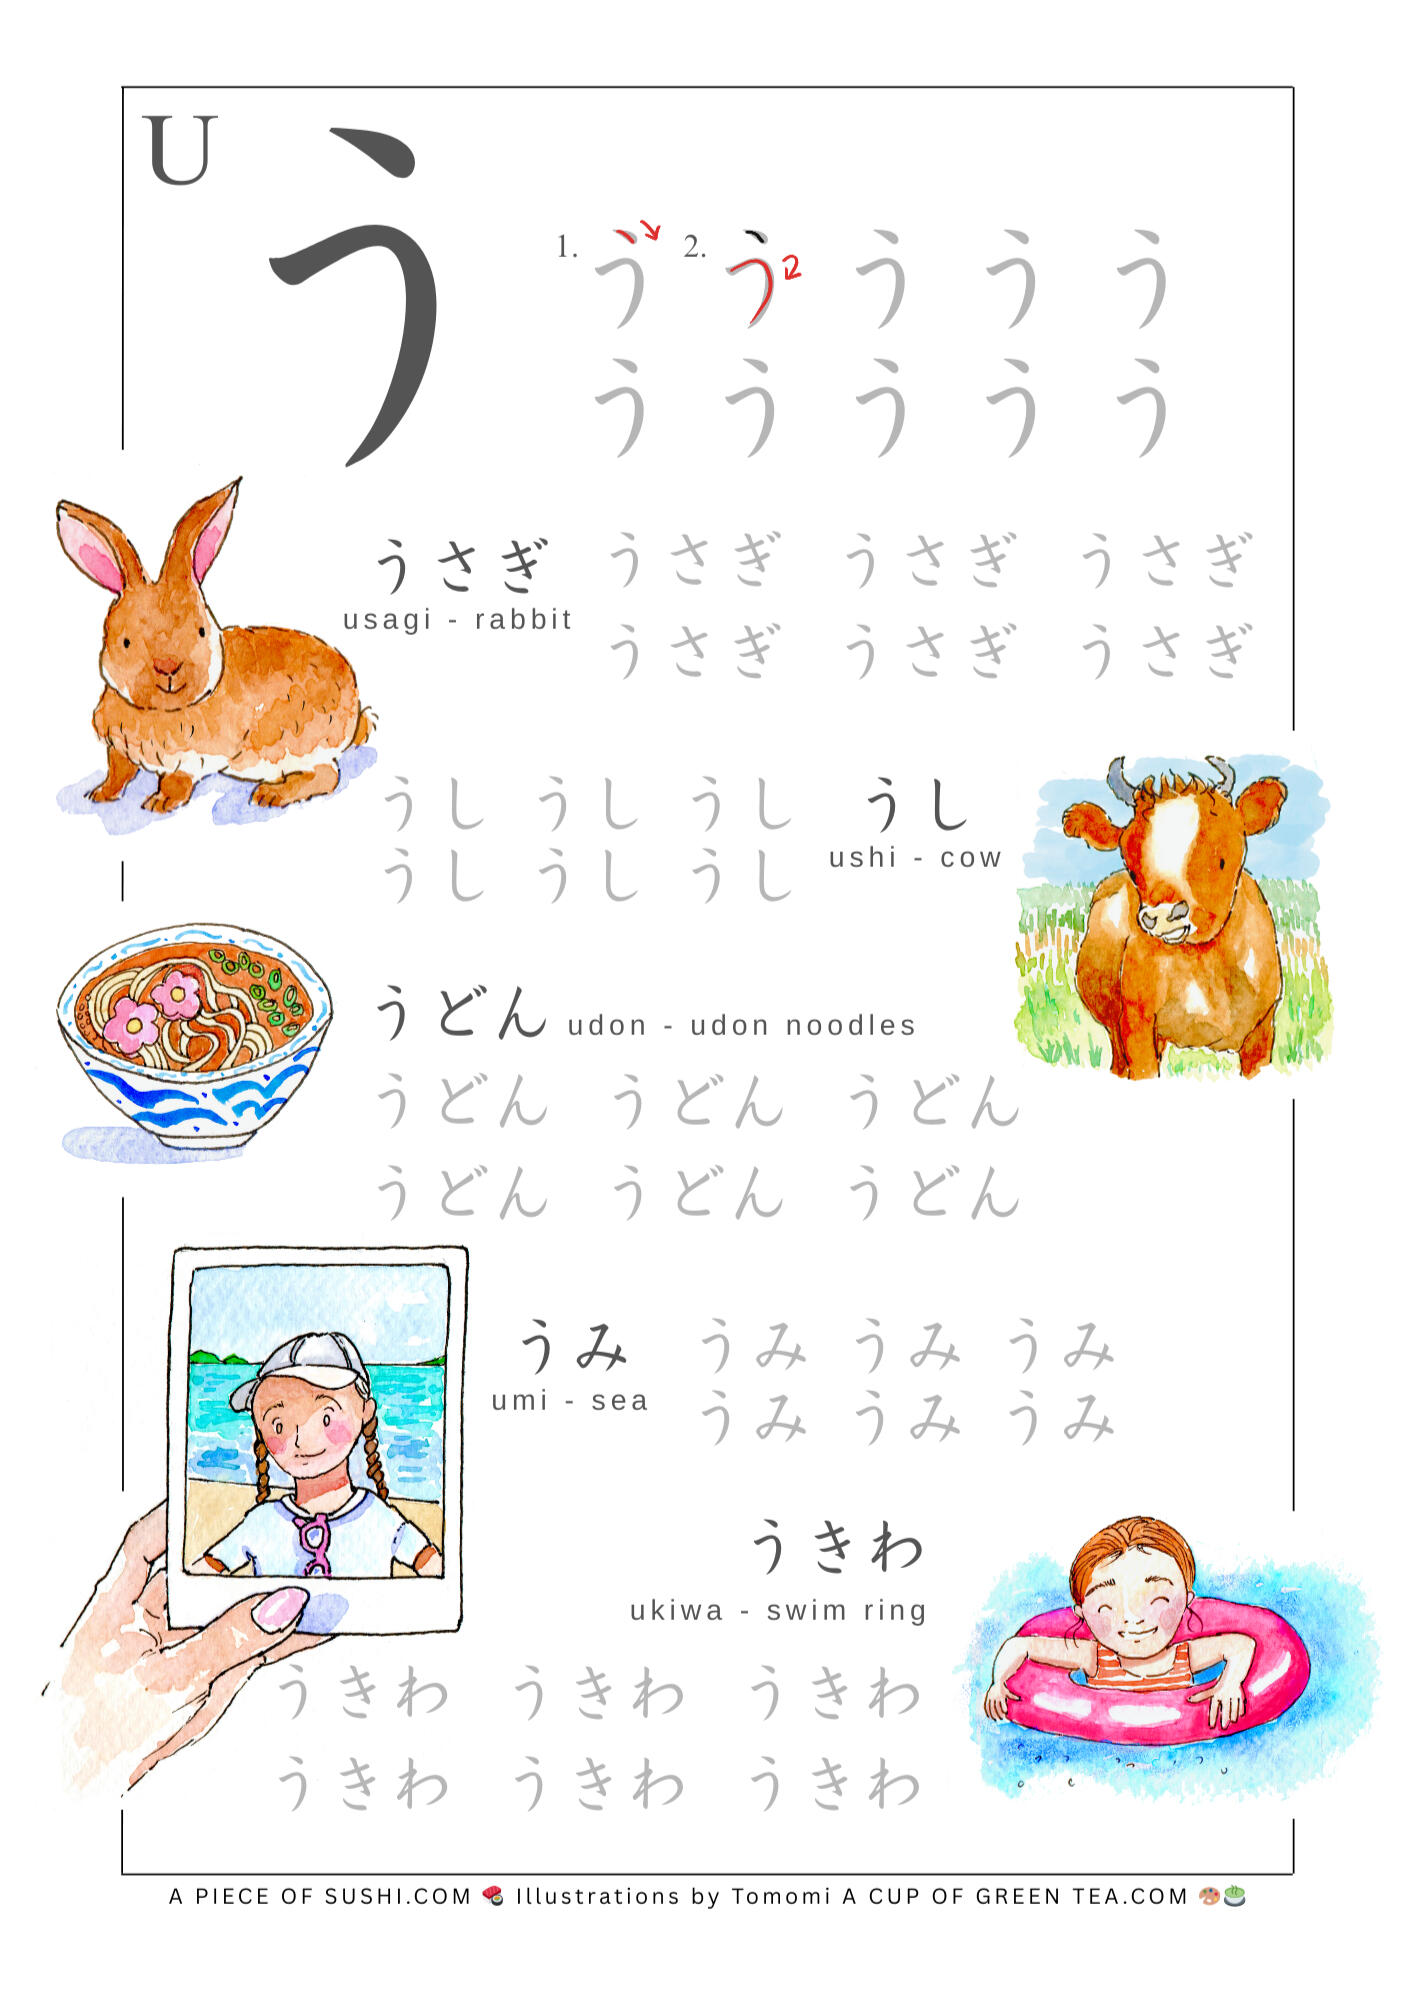 U
う
1. う 2. う う う う
う う う う う
うさぎ うさぎ うさぎ うさぎ
usagi - rabbit
うさぎ うさぎ うさぎ
うし うし うし うし
ushi - cow
うし うし うし
うどん udon - udon noodles
うどん うどん うどん
うどん うどん うどん
うみ うみ うみ うみ
umi - sea
うみ うみ うみ
うきわ
ukiwa - swim ring
うきわ うきわ うきわ
うきわ うきわ うきわ
A PIECE OF SUSHI.COM 🍣 Illustrations by Tomomi A CUP OF GREEN TEA.COM 🎨🍵